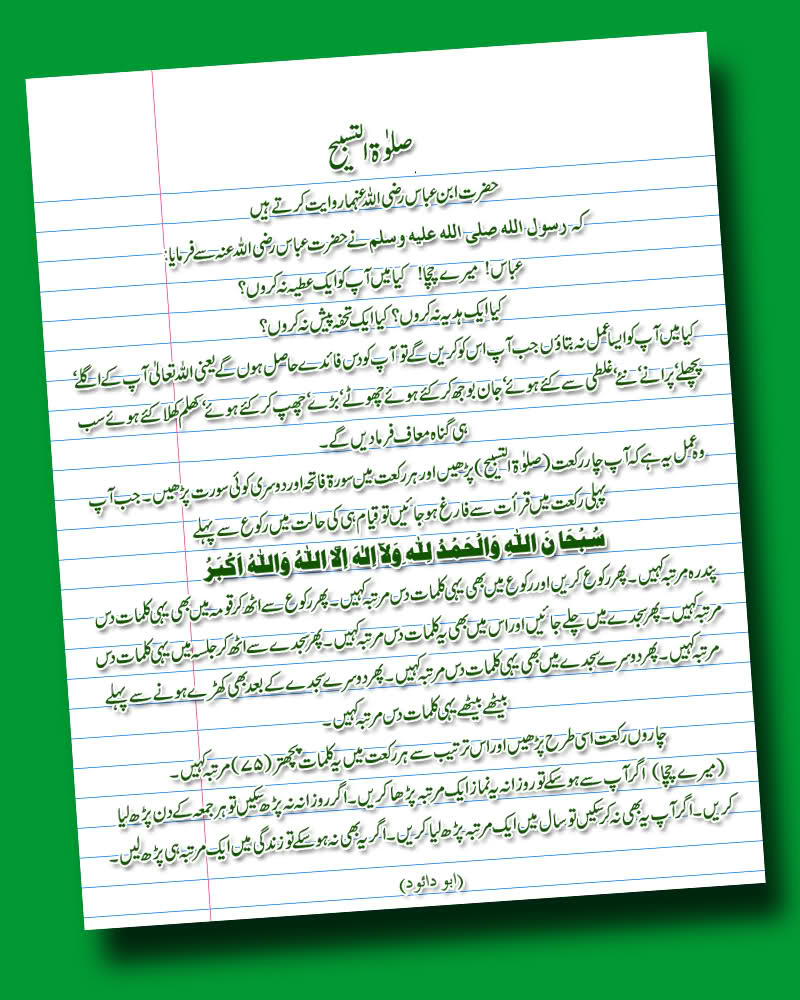 صلوٰۃ التسبیح
حضرت ابن عباس رضی اللہ عنہما روایت کرتے ہیں
کہ رسول الله صلی الله علیه وسلم نے حضرت عباس رضی اللہ عنہ سے فرمایا:
عباس! میرے چچا! کیا میں آپ کو ایک عطیہ نہ کروں؟
کیا ایک ہدیہ نہ کروں؟ کیا ایک تحفہ پیش نہ کروں؟
کیا میں آپ کو ایسا عمل نہ بتاؤں جب آپ اس کو کریں گے تو آپ کو دس فائدے حاصل ہوں گے یعنی اللہ تعالیٰ آپ کے اگلے‘
پچھلے‘ پرانے‘ نئے‘ غلطی سے کئے ہوئے‘ جان بوجھ کر کئے ہوئے‘ چھوٹے‘ بڑے‘ چھپ کر کئے ہوئے‘ کھلم کھلا کئے ہوئے سب
ہی گناہ معاف فرما دیں گے۔
وہ عمل یہ ہے کہ آپ چار رکعت (صلوٰۃ التسبیح) پڑھیں اور ہر رکعت میں سورۃ فاتحہ اور دوسری کوئی سورت پڑھیں۔ جب آپ
پہلی رکعت میں قرأت سے فارغ ہو جائیں تو قیام ہی کی حالت میں رکوع سے پہلے
سُبْحَانَ اللهِ وَالْحَمْدُ لِلّٰهِ وَلَآ اِلٰهَ اِلَّا اللهُ وَاللهُ اَكْبَرُ
پندرہ مرتبہ کہیں۔ پھر رکوع کریں اور رکوع میں بھی یہی کلمات دس مرتبہ کہیں۔ پھر رکوع سے اٹھ کر قومہ میں بھی یہی کلمات دس
مرتبہ کہیں۔ پھر سجدے میں چلے جائیں اور اس میں بھی یہ کلمات دس مرتبہ کہیں۔ پھر سجدے سے اٹھ کر جلسہ میں یہی کلمات دس
مرتبہ کہیں۔ پھر دوسرے سجدے میں بھی یہی کلمات دس مرتبہ کہیں۔ پھر دوسرے سجدے کے بعد بھی کھڑے ہونے سے پہلے
بیٹھے بیٹھے یہی کلمات دس مرتبہ کہیں۔
چاروں رکعت اسی طرح پڑھیں اور اس ترتیب سے ہر رکعت میں یہ کلمات پچھتر (۷۵) مرتبہ کہیں۔
(میرے چچا) اگر آپ سے ہو سکے تو روزانہ یہ نماز ایک مرتبہ پڑھا کریں۔ اگر روزانہ نہ پڑھ سکیں تو ہر جمعہ کے دن پڑھ لیا
کریں۔ اگر آپ یہ بھی نہ کر سکیں تو سال میں ایک مرتبہ پڑھ لیا کریں۔ اگر یہ بھی نہ ہو سکے تو زندگی میں ایک مرتبہ ہی پڑھ لیں۔
(ابو دائود)